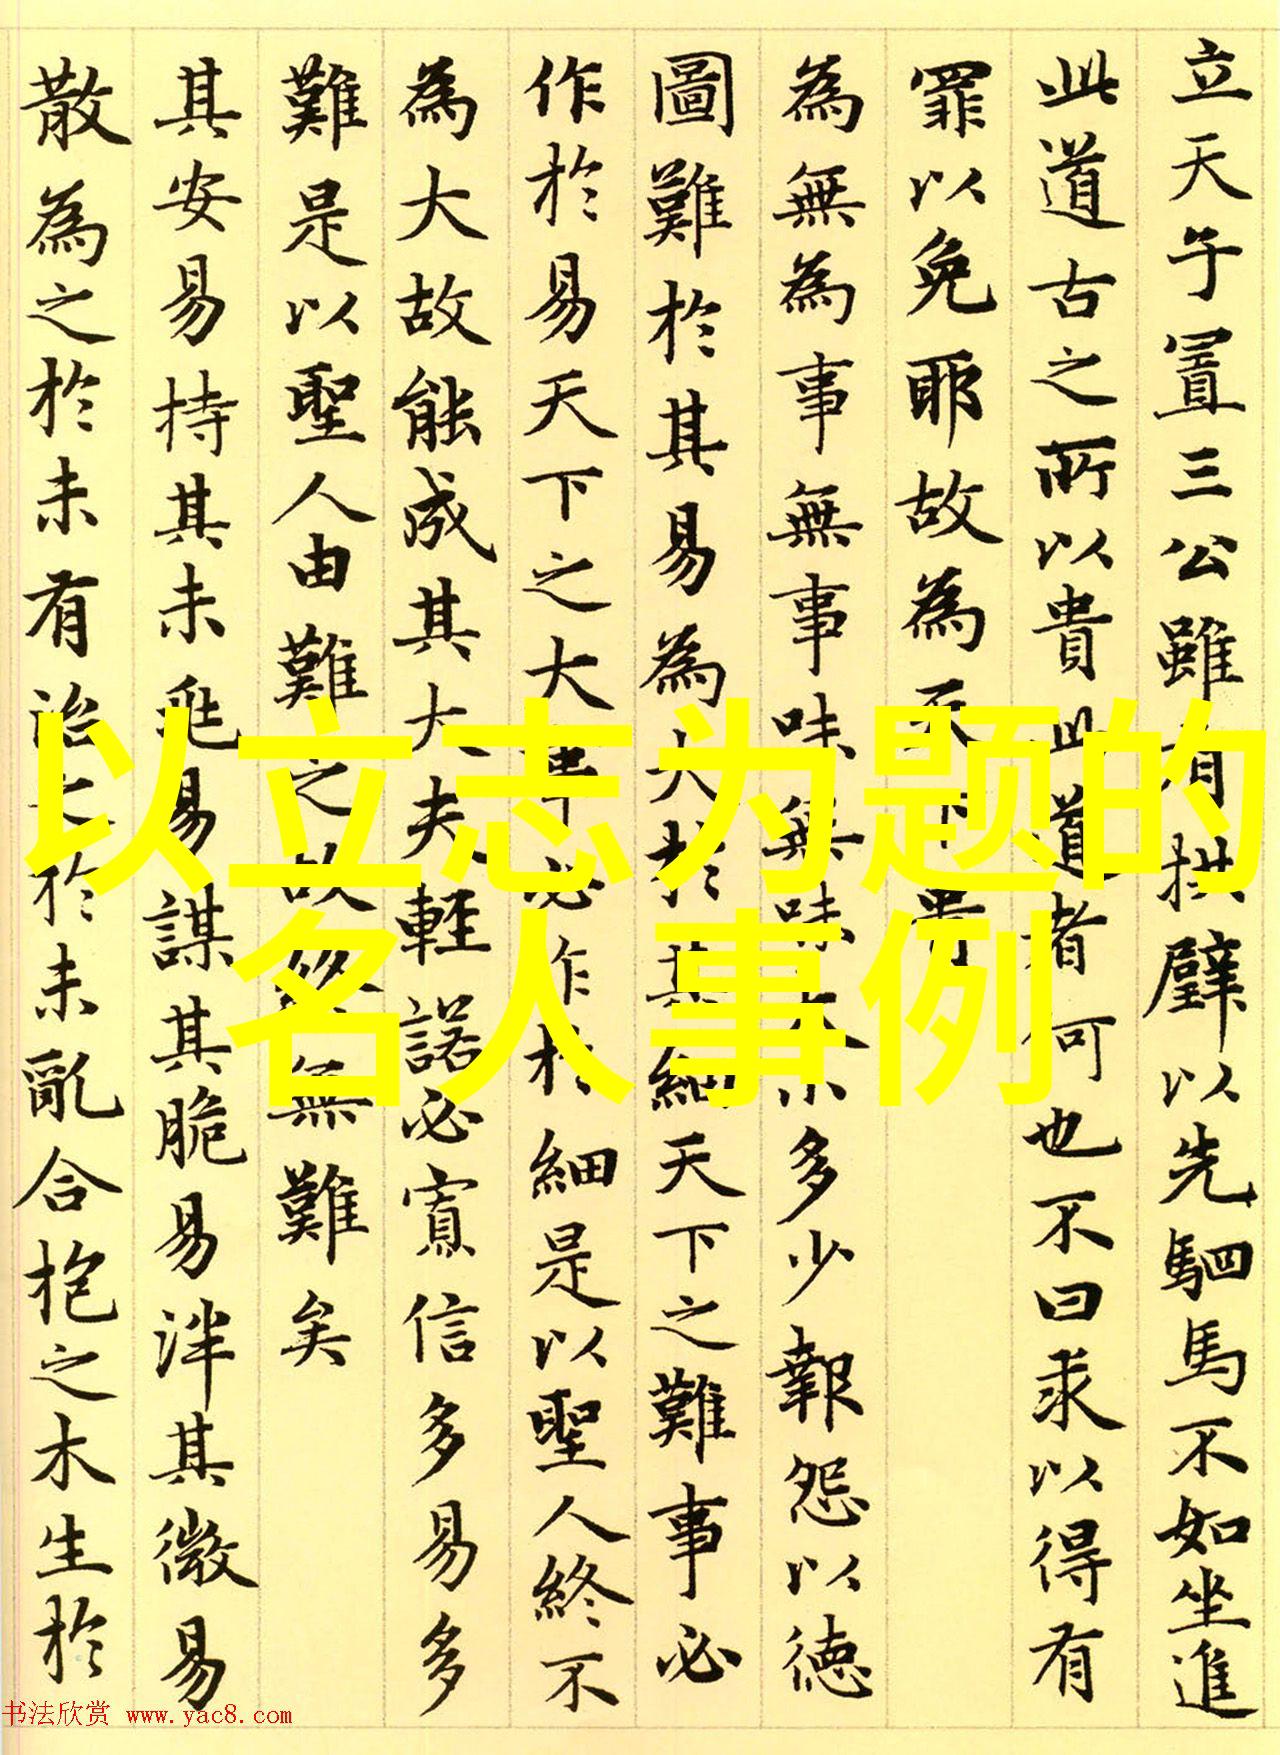 立天子置三公雖有拱璧以先駟馬不如坐進
此道古之所以貴此道者何也不曰求以得有
罪以免耶故為天下貴
為無為事無事味無味大小多少報怨以德
圖難於其易為大於其細天下之難事必
作於易天下之大事必作於細是以聖人終不
為大故能成其大夫輕諾必寡信多易多
難是以聖人由難之故終無難矣
其安易持其未兆易謀其脆易泮其微易
散為之於未有治之於未亂合抱之木生於
以立志为题的
名人事例
书法欣赏 www.yac8.com